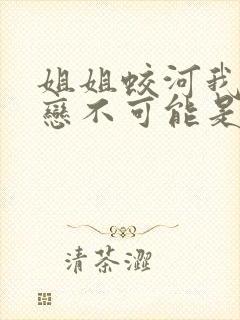 姐姐蛟河我
戀不可能是
清茶澀